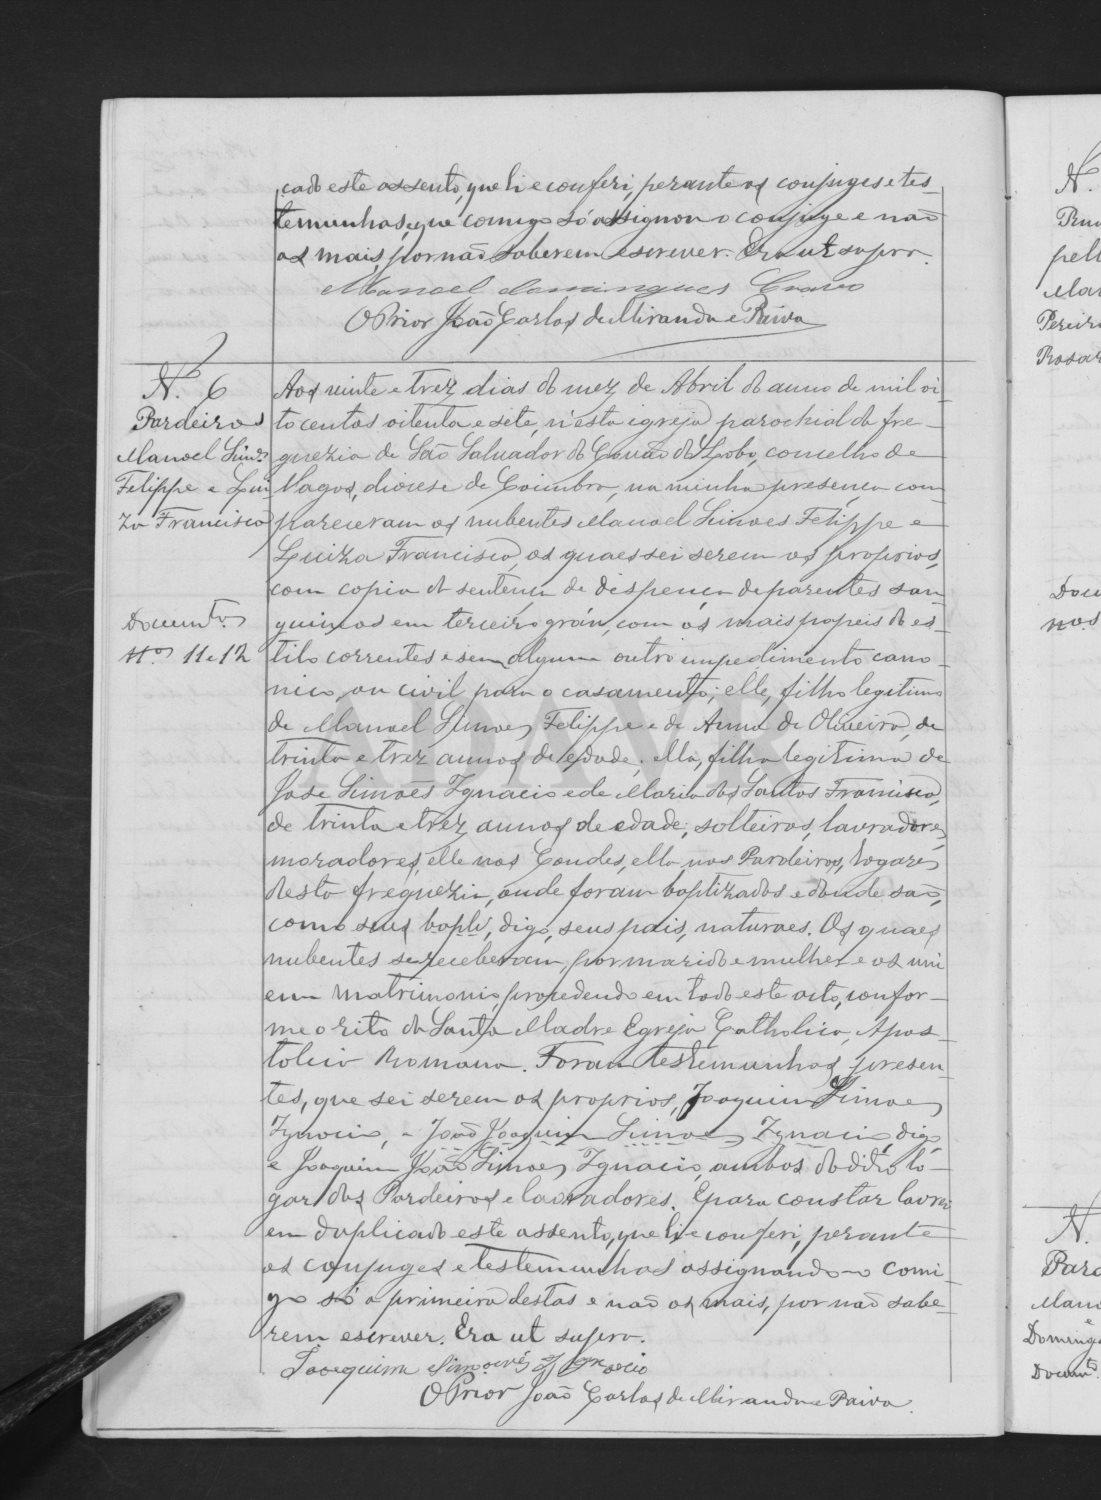 cado este assento, que li e conferi, perante os conjuges e tes-
temunhas, que comigo só assignou o conjuge e não
as mais, por não saberem escrever. Era ut supra.
Manoel Domingues
O Prior João Carlos de Miranda e Paiva
N.º 6
Pardeiros
Manoel Simões
Felippe e Lui
za Francisca
Documtos
Nos 11 e 12
Aos vinte e trez dias do mez de Abril do anno de mil oi-
tocentos oitenta e sete, n'esta igreja parochial da fre-
guezia de São Salvador do Covão do Lobo, concelho de
Vagos, diocese de Coimbra, na minha presença com
pareceram os nubentes Manoel Simões Felippe e
Luiza Francisca, os quaes sei serem os proprios,
com copia da sentença de dispença de parentes san-
guineos em terceiro gráu, com os mais papeis do es-
tilo correntes e sem algum outro impedimento cano-
nico, ou civil para o casamento; elle, filho legitimo
de Manoel Simões Felippe e de Anna de Oliveira, de
trinta e trez annos de edade; ella, filha legitima de
José Simões Ignacio e de Maria dos Santos Francisca,
de trinta e trez annos de edade; solteiros, lavradores,
moradores, elle nos Condes, ella nos Pardeiros, logares
desta freguezia, onde foram baptizados e donde são,
como seus bapti, digo, seus pais, naturaes. Os quaes
nubentes se receberam por marido e mulher e os uni
em matrimonio, procedendo em todo este acto, confor-
me o rito da Santa Madre Egreja Catholica, Apos-
tolica Romana. Foram testemunhas presen-
tes, que sei serem os proprios, Joaquim Simões
Ignacio, e João Joaquim Simões Ignacio, digo,
e Joaquim João Simões Ignacio, ambos do dito lo-
gar dos Pardeiros e lavradores. E para constar lavrei
em duplicado este assento, que li e conferi, perante
os conjuges e testemunhas assignando-o comi-
go só a primeira destas e não os mais, por não sabe-
rem escrever. Era ut supra.
Joaquim Simões Ignacio
O Prior João Carlos de Miranda e Paiva.
ADAVR
N.
Pereira
Rosar
Docu
nos
N.
Pard
Mano
e
Domingu
Documt.